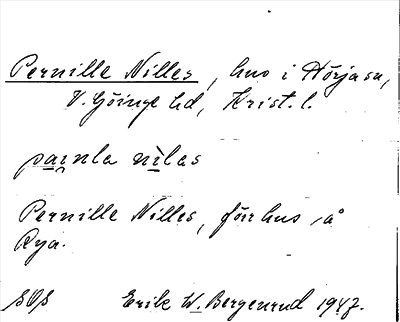 Pernille Nilles, hus i Hörja sn,
V. Göinge hd, Krist. l.
pai̯nla nilas
Pernille Nilles, förr hus på
Rya.
SOS Erik W. Bergenrud 1947.